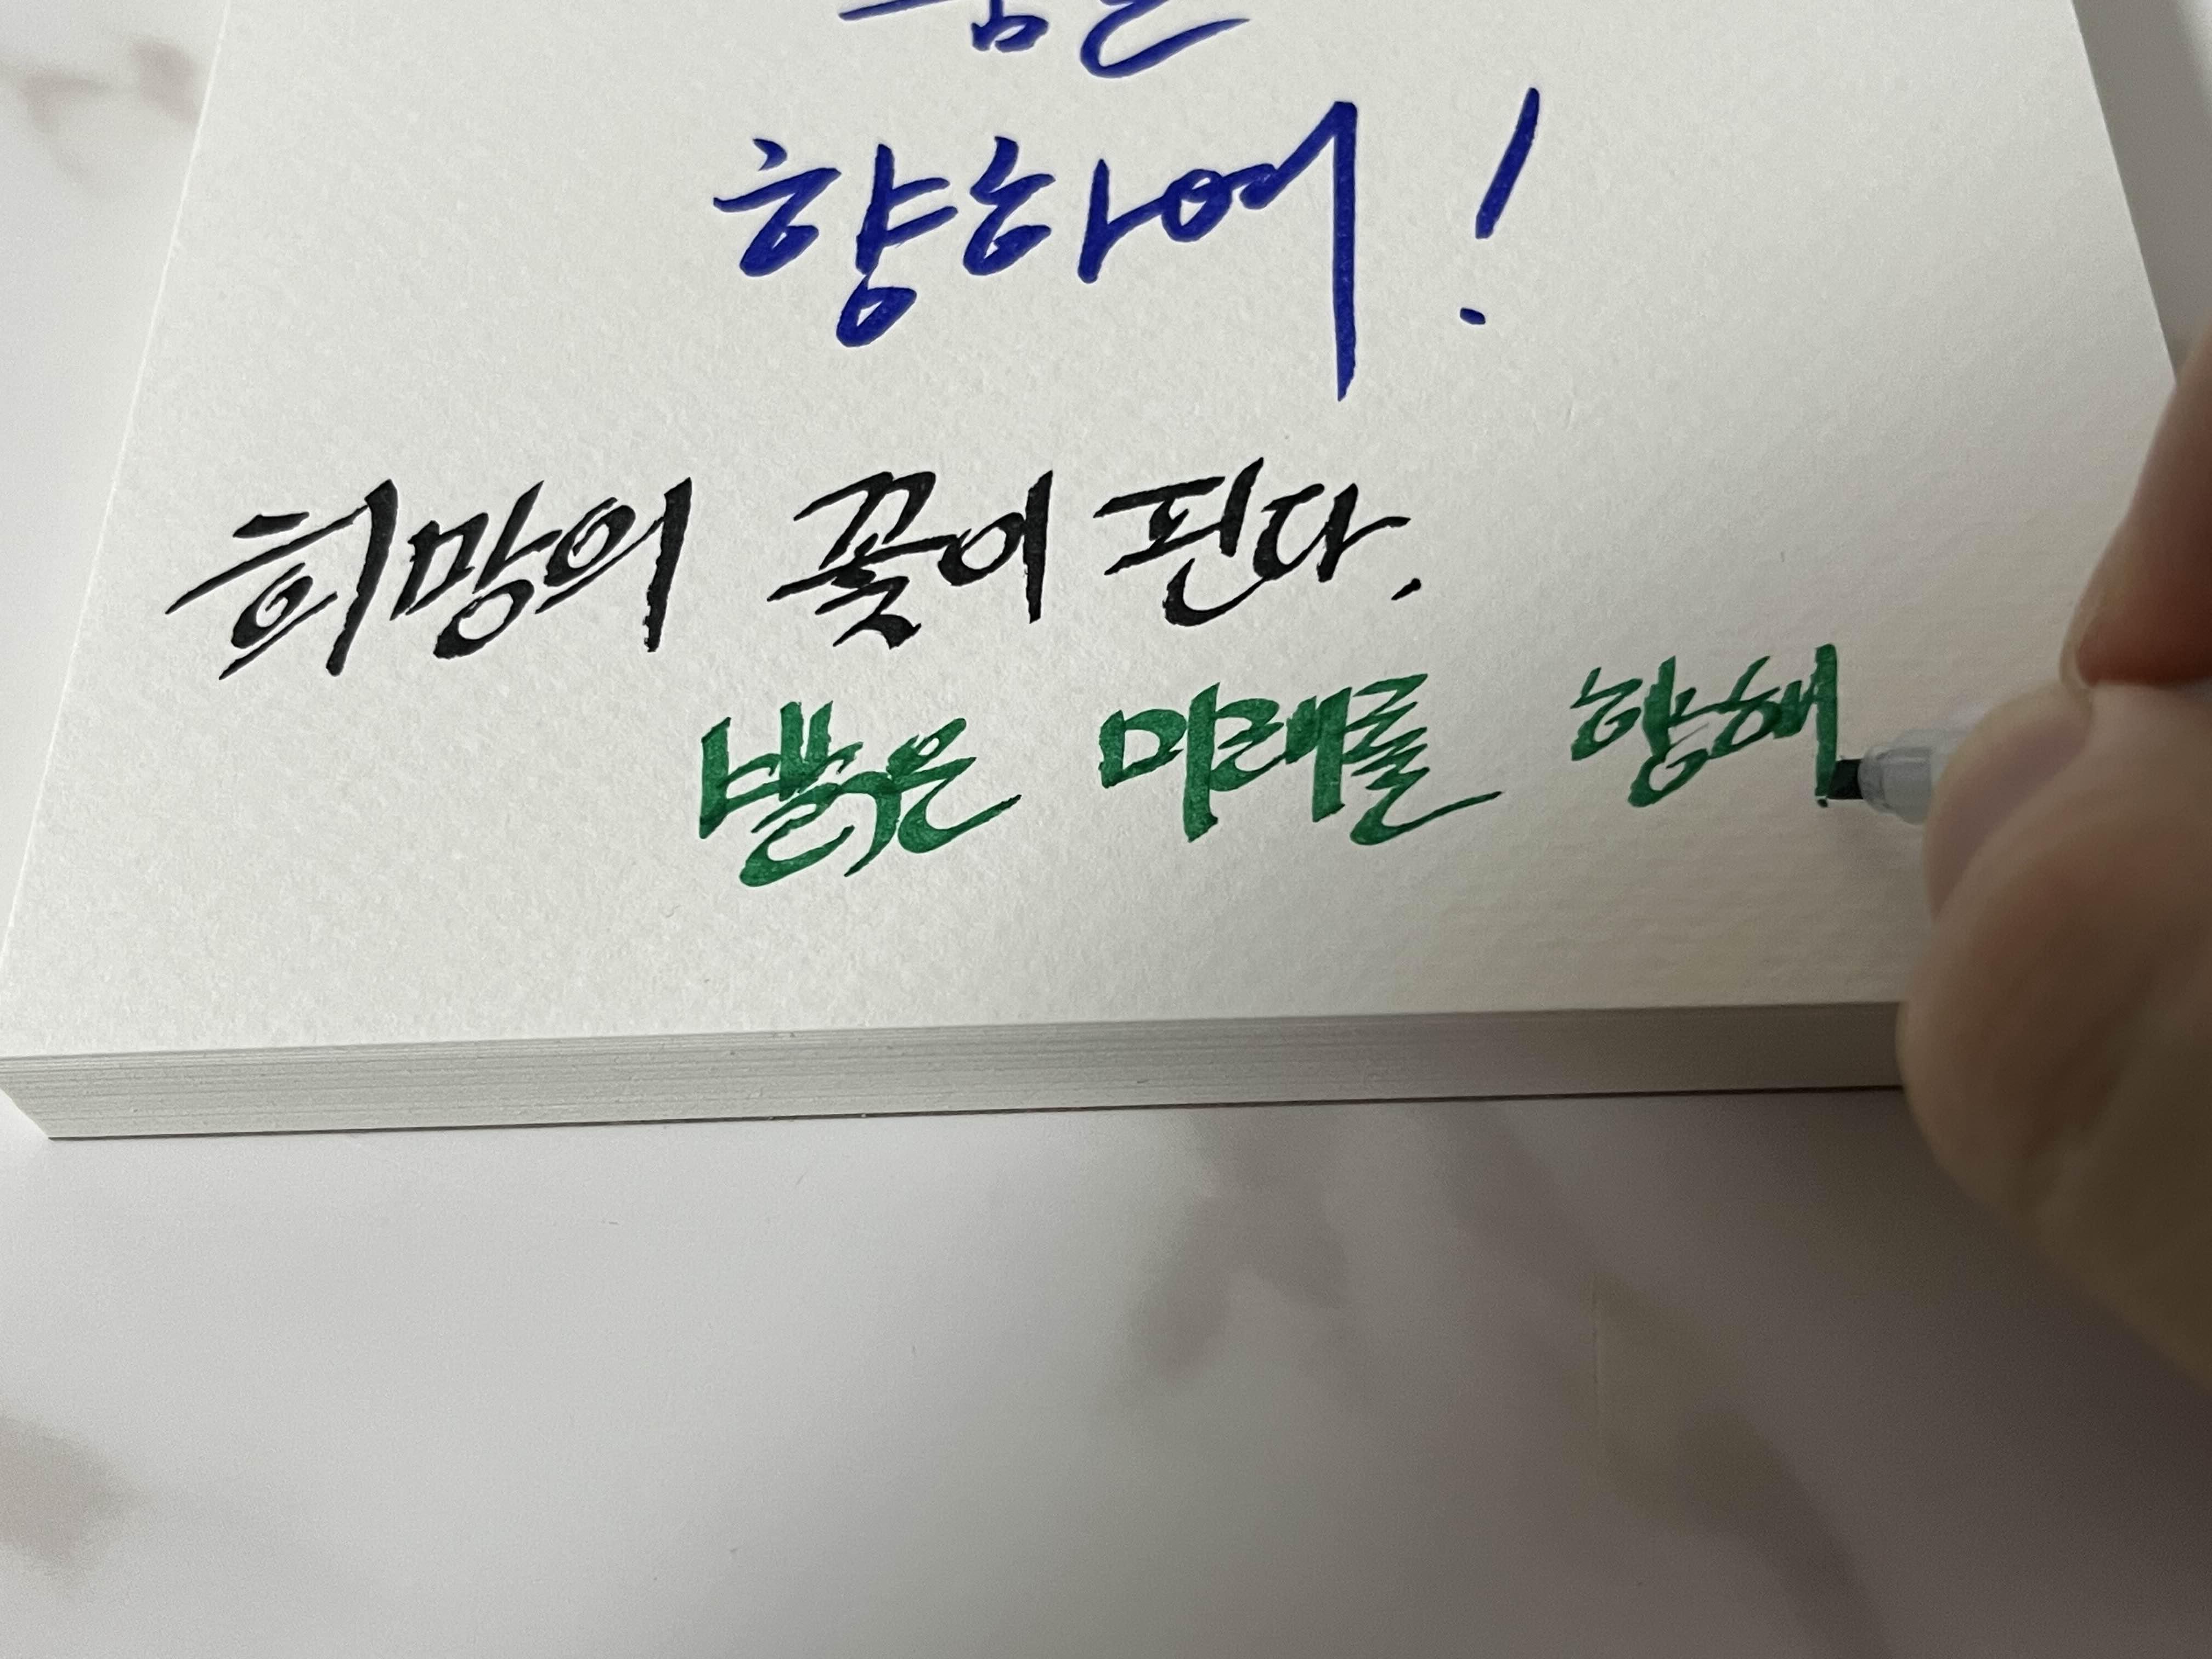 향하여!
희망의 꽃이 핀다.
밝은 미래를 향해